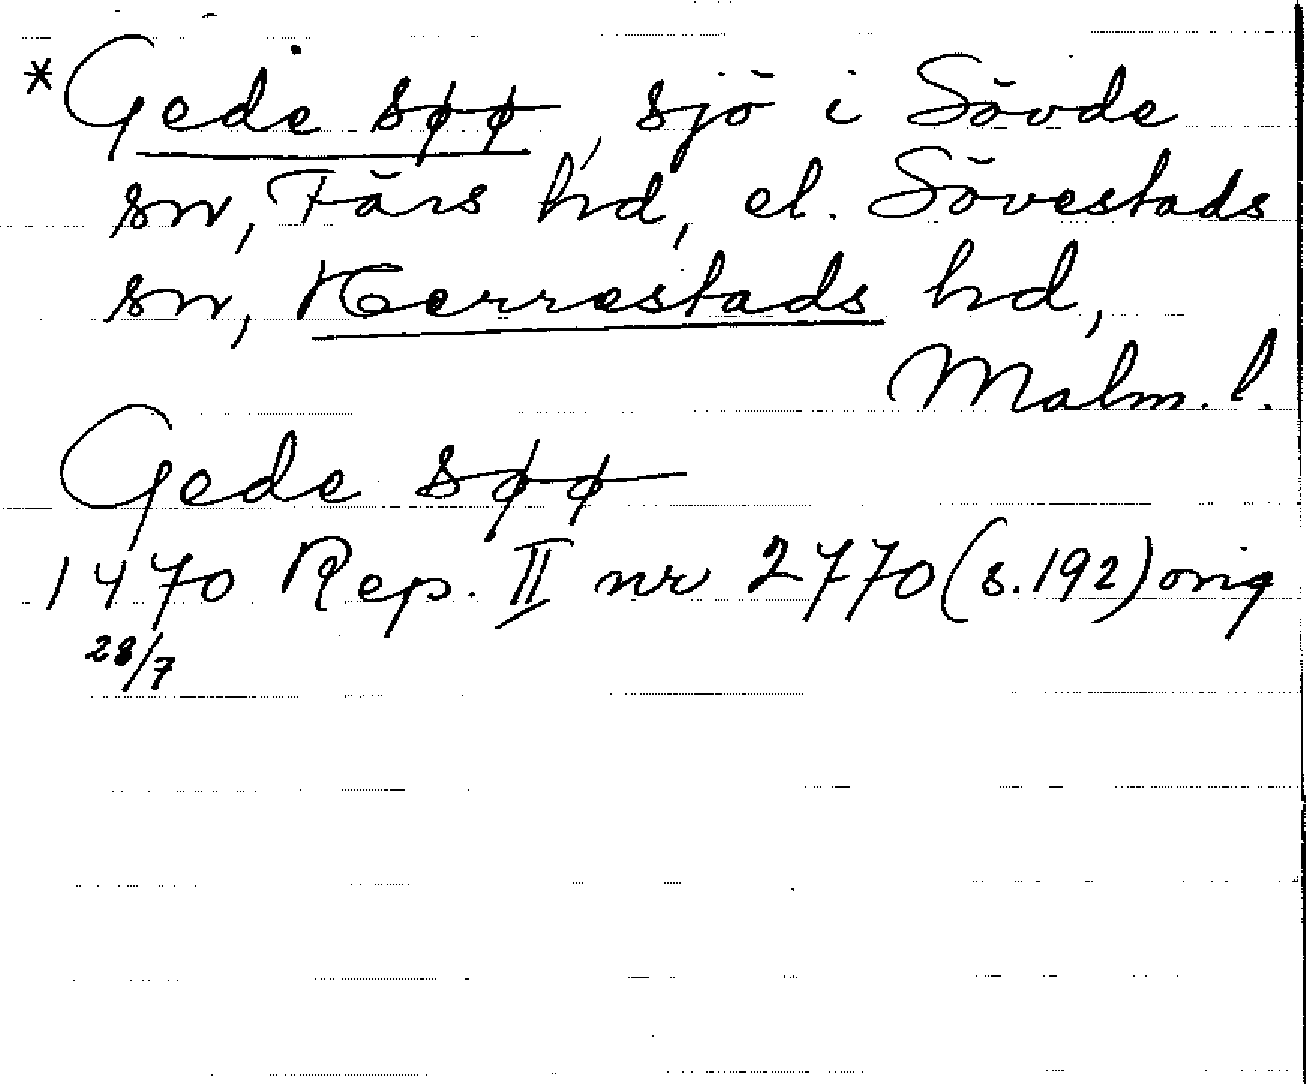 *Gede søø, sjö i Sövde
sn, Färs hd, el. Sövestads
sn, Herrestads hd,
Malm. l.
Gede søø
1470 Rep. II nr 2770 (s. 192) orig
28/7